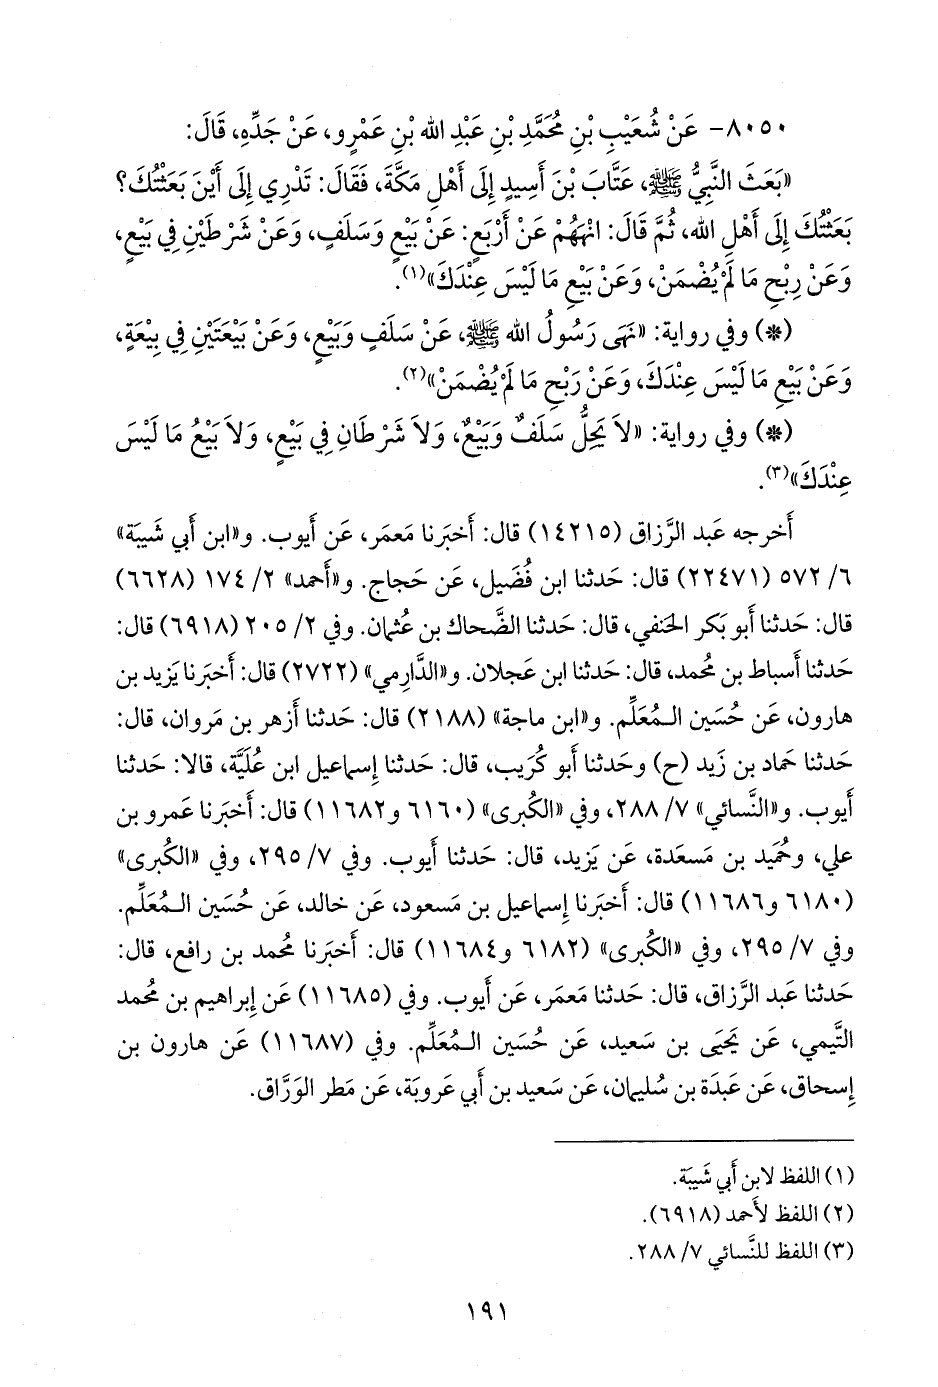 ٨٠٥٠- عَنْ شُعَيْبِ بْنِ مُحَمَّدِ بْنِ عَبْدِ الله بْنِ عَمْرٍو، عَنْ جَدِّهِ، قَالَ:
«بَعَثَ النَّبِيُّ ﷺ، عَتَّابَ بْنَ أَسِيدٍ إِلَى أَهْلِ مَكَّةَ، فَقَالَ: تَدْرِي إِلَى أَيْنَ بَعَثْتُكَ؟
بَعَثْتُكَ إِلَى أَهْلِ الله، ثُمَّ قَالَ: انْهَهُمْ عَنْ أَرْبَعٍ: عَنْ بَيْعٍ وَسَلَفٍ، وَعَنْ شَرْطَيْنِ فِي بَيْعٍ،
وَعَنْ رِبْحِ مَا لَمْ يُضْمَنْ، وَعَنْ بَيْعِ مَا لَيْسَ عِنْدَكَ»(١).
(*) وفي رواية: «نَهَى رَسُولُ الله ﷺ، عَنْ سَلَفٍ وَبَيْعٍ، وَعَنْ بَيْعَتَيْنِ فِي بِيْعَةٍ،
وَعَنْ بَيْعِ مَا لَيْسَ عِنْدَكَ، وَعَنْ رَبْحِ مَا لَمْ يُضْمَنْ»(٢).
(*) وفي رواية: «لاَ يَحِلُّ سَلَفٌ وَبَيْعٌ، وَلاَ شَرْطَانِ فِي بَيْعٍ، وَلاَ بَيْعُ مَا لَيْسَ
عِنْدَكَ»(٣).
أَخرجه عَبد الرَّزاق (١٤٢١٥) قال: أَخبَرنا مَعمَر، عَن أَيوب. و«ابن أَبي شَيبَة»
٦/ ٥٧٢ (٢٢٤٧١) قال: حَدثنا ابن فُضَيل، عَن حَجاج. و«أَحمد» ٢/ ١٧٤ (٦٦٢٨)
قال: حَدثنا أَبو بَكر الحَنفي، قال: حَدثنا الضَّحاك بن عُثمان. وفي ٢/ ٢٠٥ (٦٩١٨) قال:
حَدثنا أَسباط بن مُحمد، قال: حَدثنا ابن عَجلان. و«الدَّارِمي» (٢٧٢٢) قال: أَخبَرنا يَزيد بن
هارون، عَن حُسَين الـمُعَلِّم. و«ابن ماجة» (٢١٨٨) قال: حَدثنا أَزهر بن مَروان، قال:
حَدثنا حَماد بن زَيد (ح) وحَدثنا أَبو كُرَيب، قال: حَدثنا إِسماعيل ابن عُلَيَّة، قالا: حَدثنا
أَيوب. و«النَّسائي» ٧/ ٢٨٨، وفي «الكُبرى» (٦١٦٠ و١١٦٨٢) قال: أَخبَرنا عَمرو بن
علي، وحُميد بن مَسعَدة، عَن يَزيد، قال: حَدثنا أَيوب. وفي ٧/ ٢٩٥، وفي «الكُبرى»
(٦١٨٠ و١١٦٨٦) قال: أَخبَرنا إِسماعيل بن مَسعود، عَن خالد، عَن حُسَين الـمُعَلِّم.
وفي ٧/ ٢٩٥، وفي «الكُبرى» (٦١٨٢ و١١٦٨٤) قال: أَخبَرنا مُحمد بن رافع، قال:
حَدثنا عَبد الرَّزاق، قال: حَدثنا مَعمَر، عَن أَيوب. وفي (١١٦٨٥) عَن إِبراهيم بن مُحمد
التَّيمي، عَن يَحيَى بن سَعيد، عَن حُسَين الـمُعَلِّم. وفي (١١٦٨٧) عَن هارون بن
إِسحاق، عَن عَبدَة بن سُليمان، عَن سَعيد بن أَبي عَروبَة، عَن مَطر الوَرَّاق.
(١) اللفظ لابن أَبي شَيبَة.
(٢) اللفظ لأَحمد (٦٩١٨).
(٣) اللفظ للنَّسائي ٧/ ٢٨٨.
١٩١